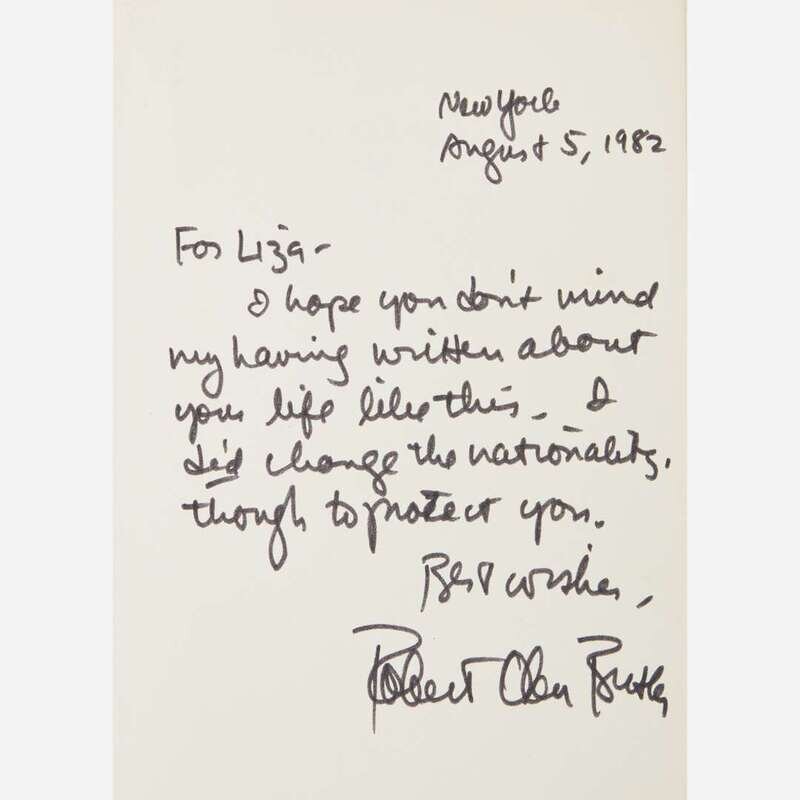 New York
August 5, 1982
For Liza-
I hope you don't mind
my having written about
your life like this. I
did change the nationality,
though to protect you.
Best wishes,
Robert Olen Butler